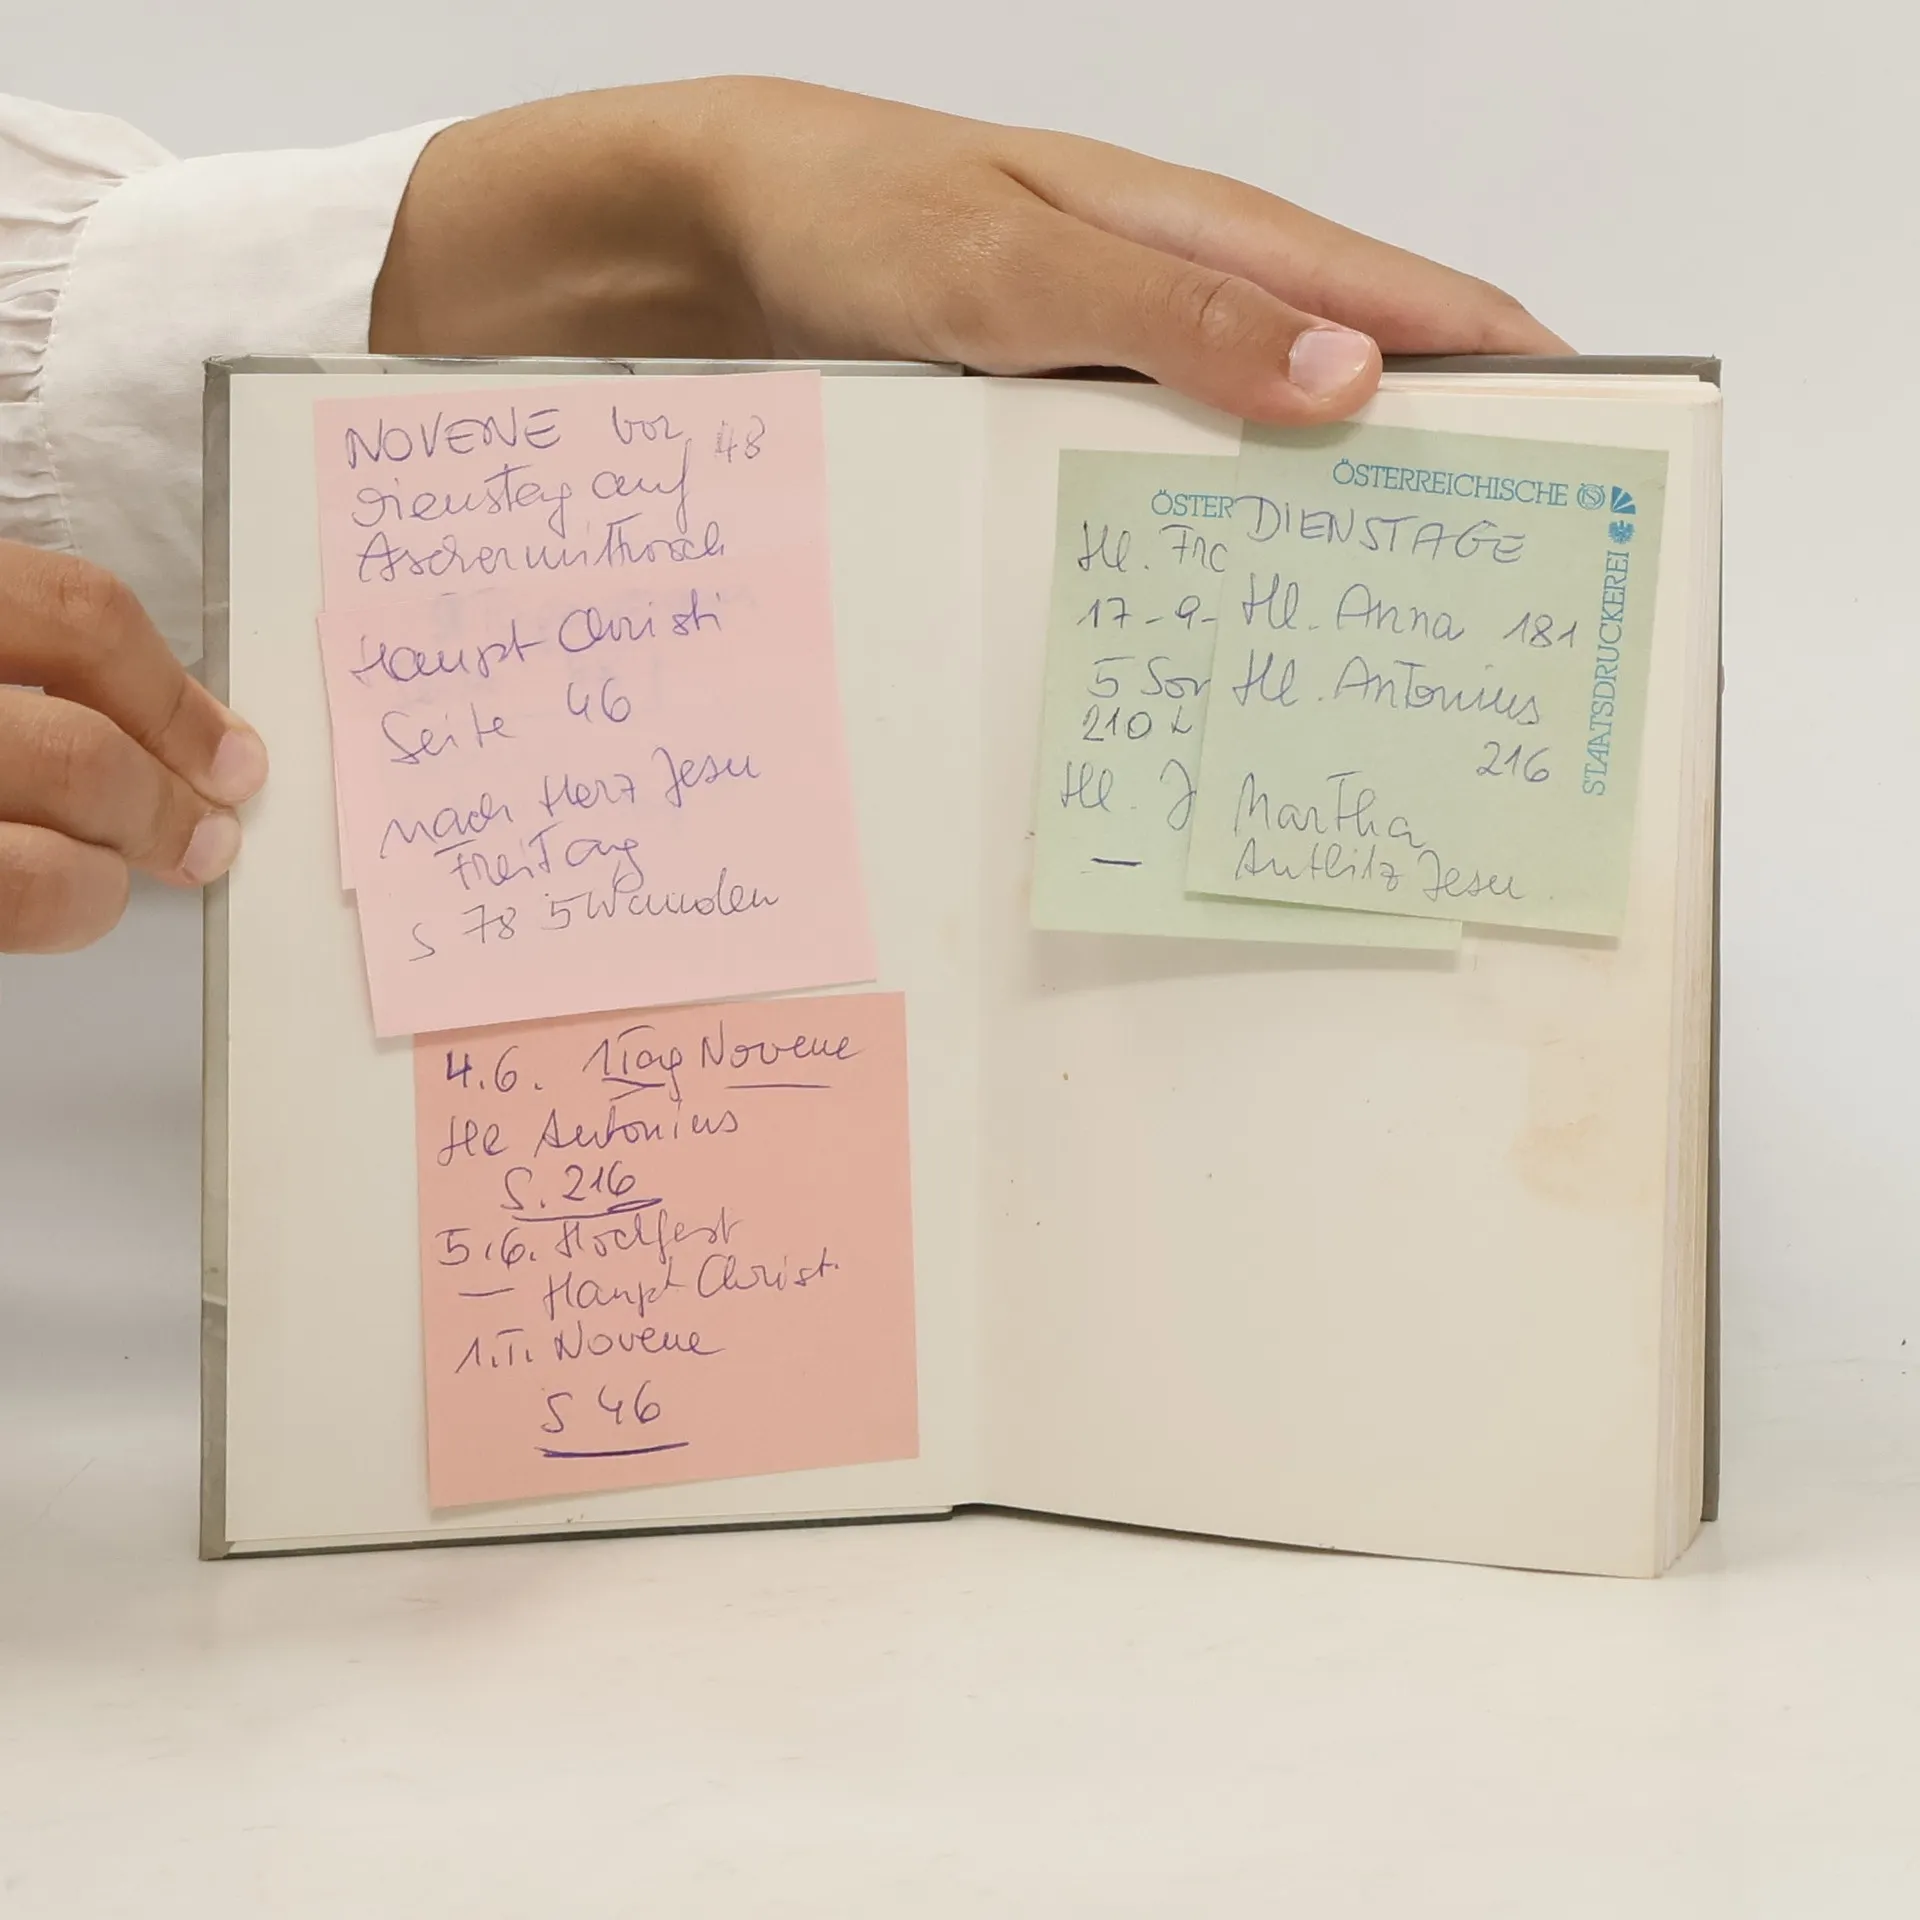 NOVENE vor 48
Dienstag auf
Aschermittwoch
Haupt Christi
Seite 46
nach Herz Jesu
Freitag
S 78 5 Wunden
4.6. 1 Tag Novene
Hl Antonius
S. 216
5.6. Hochfest
— Haupt Christi
1.T. Novene
S 46
ÖSTER
Hl. Fra
17-9-
5 Son
210
Hl. J
—
ÖSTERREICHISCHE
STAATSDRUCKEREI
DIENSTAGE
Hl. Anna 181
Hl. Antonius
216
Martha
Antlitz Jesu